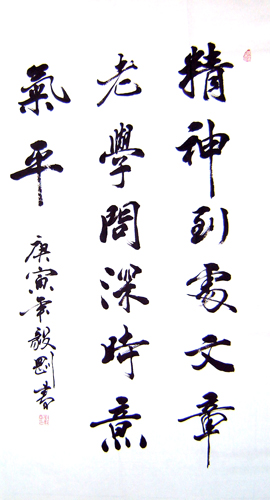 精神到處文章
老學問深時意
氣平
庚寅年毅剛書